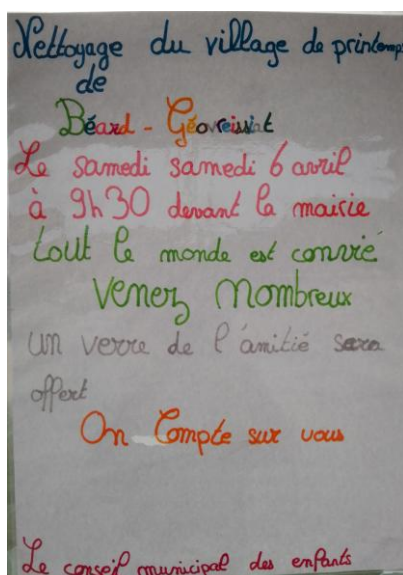 Nettoyage du village de printemps
de
Béard - Géovreissiat
Le samedi samedi 6 avril
à 9h30 devant la mairie
tout le monde est convié
Venez Nombreux
un verre de l'amitié sera
offert
On Compte sur vous
Le conseil municipal des enfants